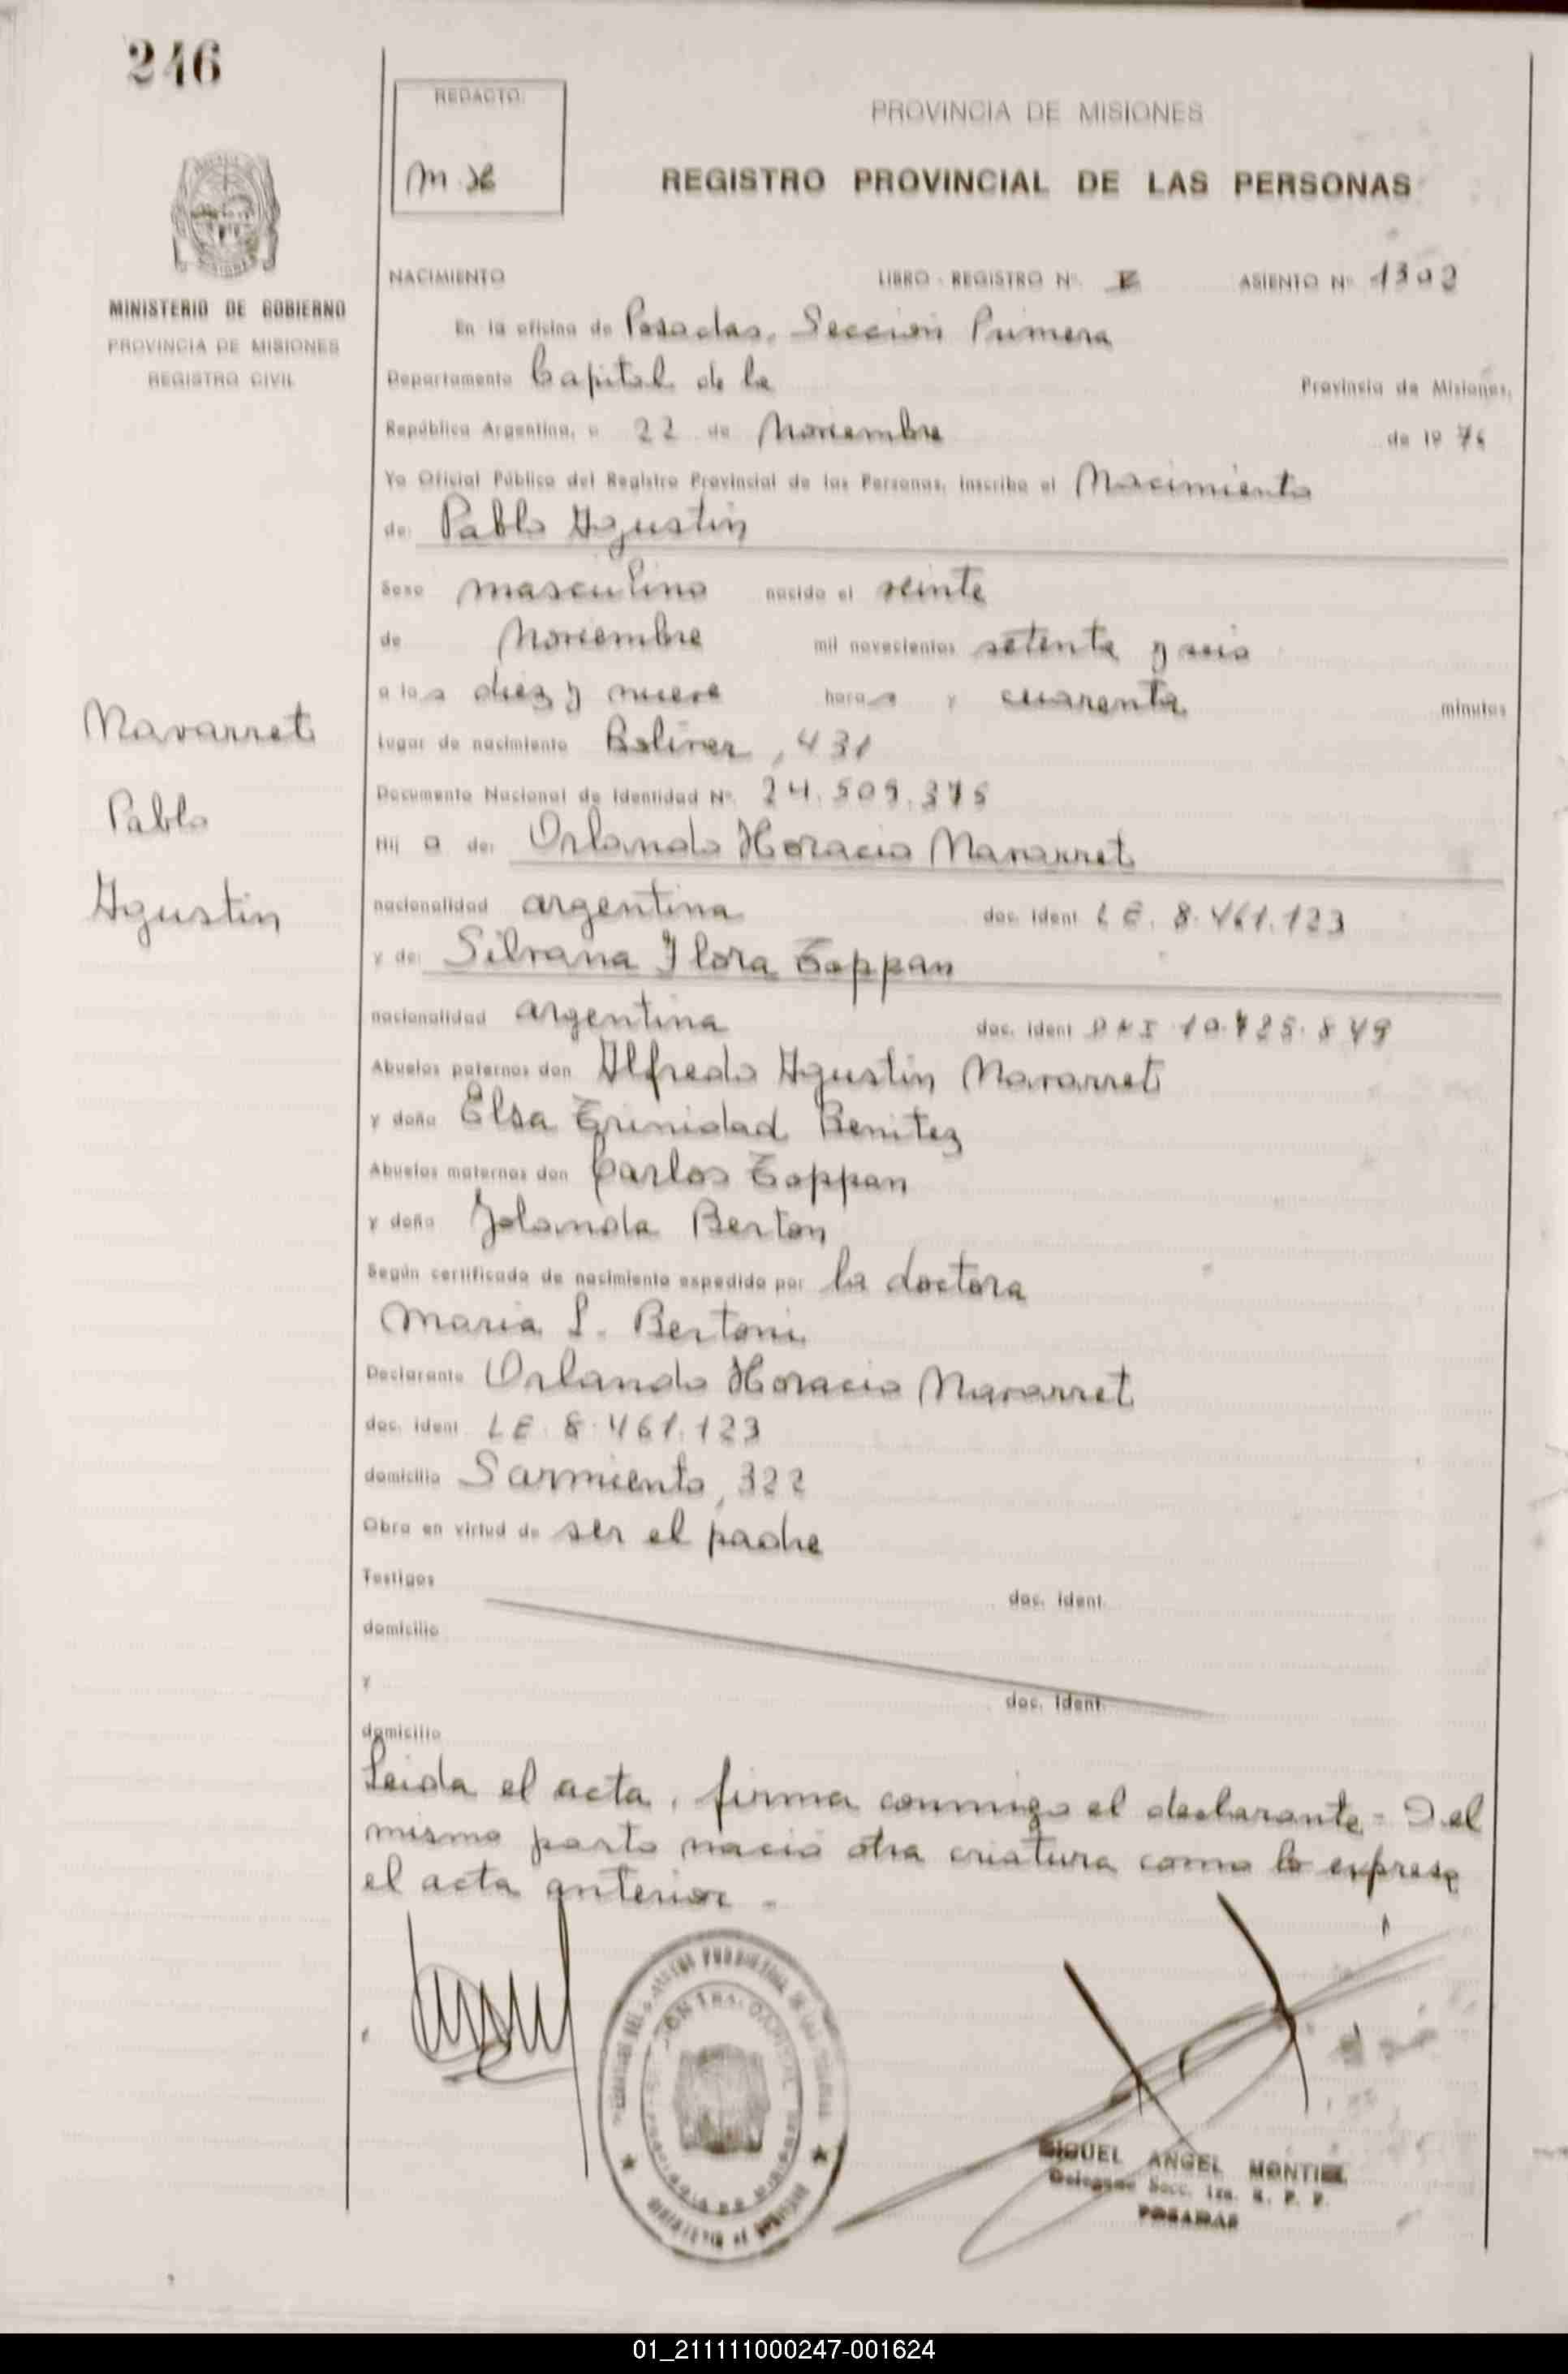 246
REDACTO:
M.H
PROVINCIA DE MISIONES
REGISTRO PROVINCIAL DE LAS PERSONAS
MINISTERIO DE GOBIERNO
PROVINCIA DE MISIONES
REGISTRO CIVIL
NACIMIENTO LIBRO - REGISTRO Nº. ASIENTO Nº 1392
En la oficina de Posadas, Sección Primera
Departamento Capital de la Provincia de Misiones,
República Argentina, a 22 de Noviembre de 19 76
Yo Oficial Público del Registro Provincial de las Personas, inscribo el Nacimiento
de: Pablo Agustín
Sexo masculino nacido el veinte
de Noviembre mil novecientos setenta y seis
a las diez y nueve horas y cuarenta minutos
Lugar de nacimiento Bolivar, 431
Documento Nacional de Identidad Nº. 24.509.375
Hij o de: Orlando Horacio Navarret
nacionalidad argentina doc. ident L E. 8.461.123
y de: Silvana Flora Toppan
nacionalidad argentina doc. ident D N I 10.725.849
Abuelos paternos don Alfredo Agustín Navarret
y doña Elsa Trinidad Benitez
Abuelos maternos don Carlos Toppan
y doña Jolanda Berton
Según certificado de nacimiento expedido por la doctora
Maria L. Bertoni
Declarante Orlando Horacio Navarret
doc. ident L E 8.461.123
domicilio Sarmiento, 322
Obra en virtud de ser el padre
Testigos doc. ident.
domicilio
y doc. ident.
domicilio
Leida el acta, firma conmigo el declarante - Del
mismo parto nació otra criatura como lo expresa
el acta anterior -
Navarret
Pablo
Agustín
MIGUEL ANGEL MONTIEL
Delegado Secc. 1ra. R. P. P.
POSADAS
01_211111000247-001624